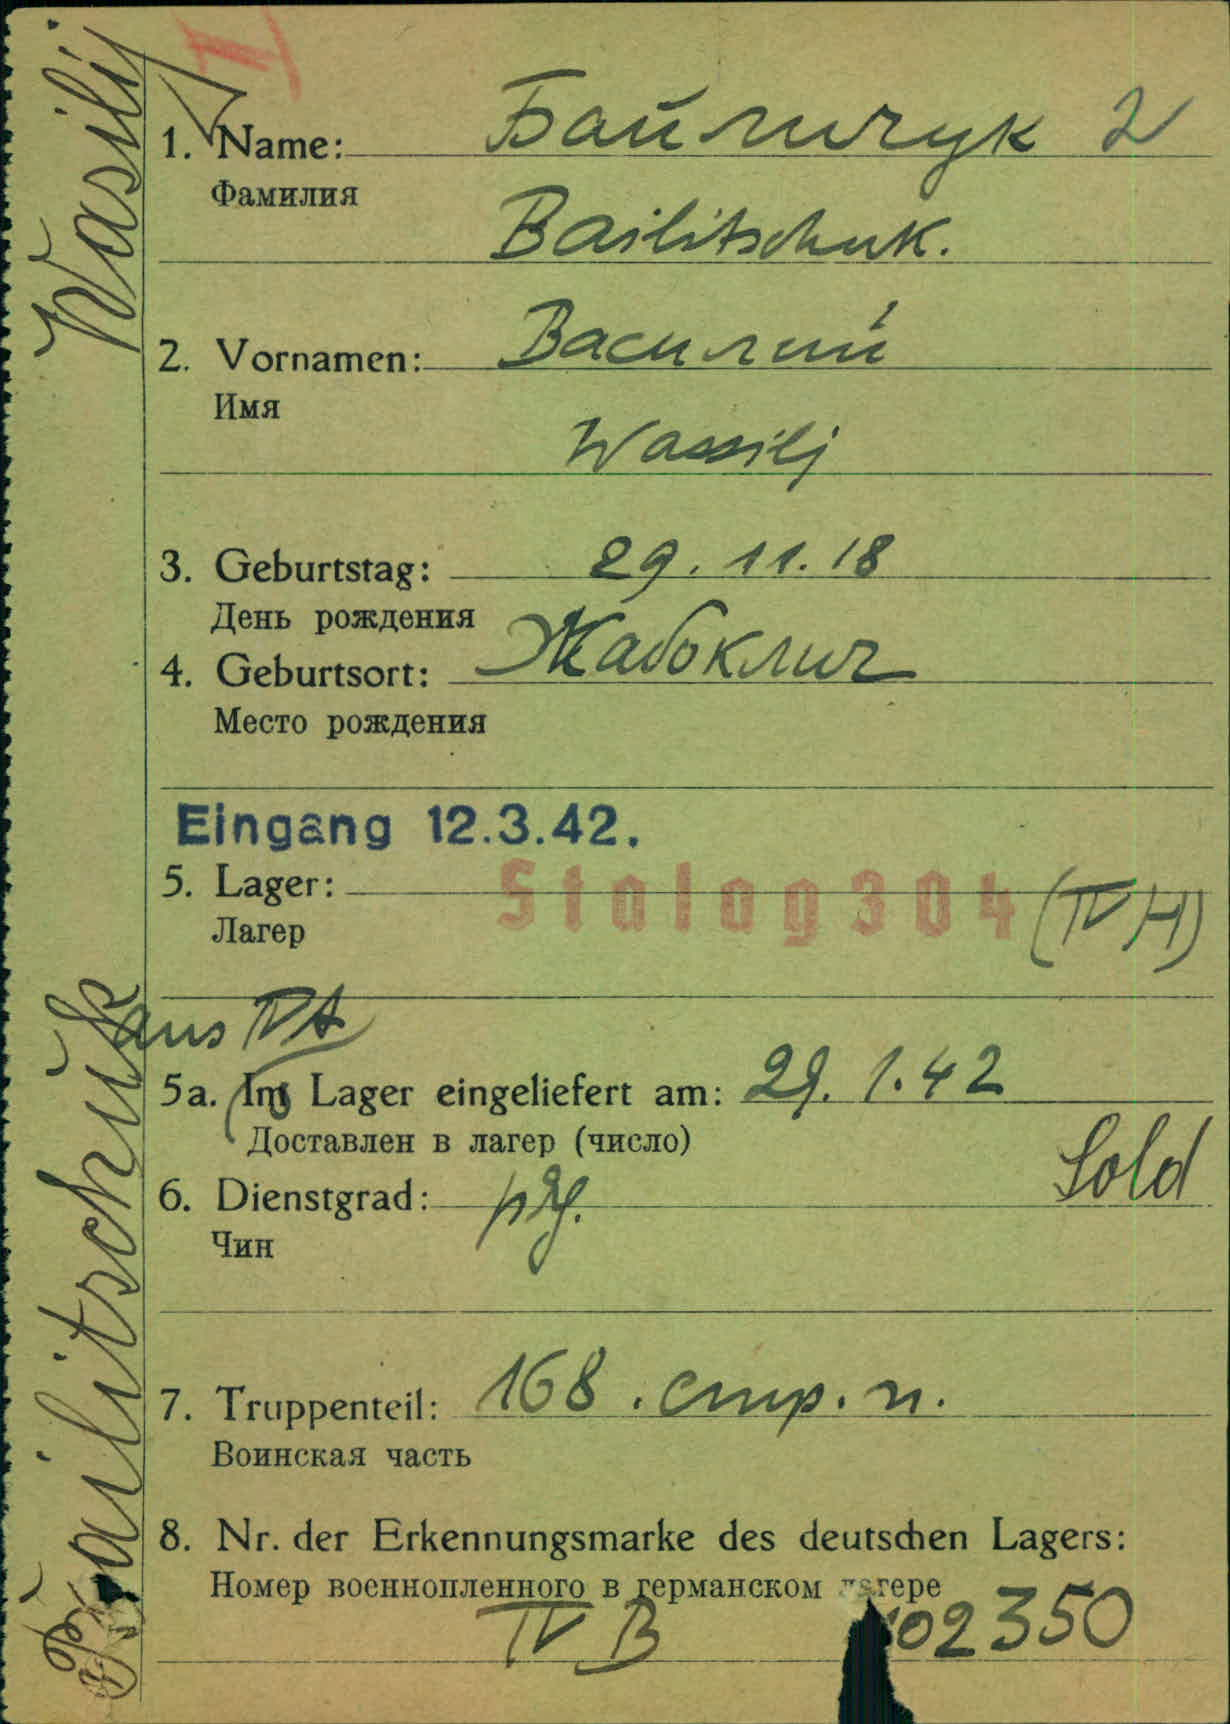 Wasilij
Bailitschuk
1. Name: Байличук 2
Фамилия
Bailitschuk.
2. Vornamen: Василий
Имя
Wassilj
3. Geburtstag: 29.11.18
День рождения
4. Geburtsort: Жабоклич
Место рождения
Eingang 12.3.42.
5. Lager: Stalag 304 (IV H)
Лагер
aus IV A
5a. Ins Lager eingeliefert am: 29.1.42
Доставлен в лагер (число)
Sold
6. Dienstgrad:
Чин
7. Truppenteil: 168. стр. п.
Воинская часть
8. Nr. der Erkennungsmarke des deutschen Lagers:
Номер военнопленного в германском лагере
IV B 102350